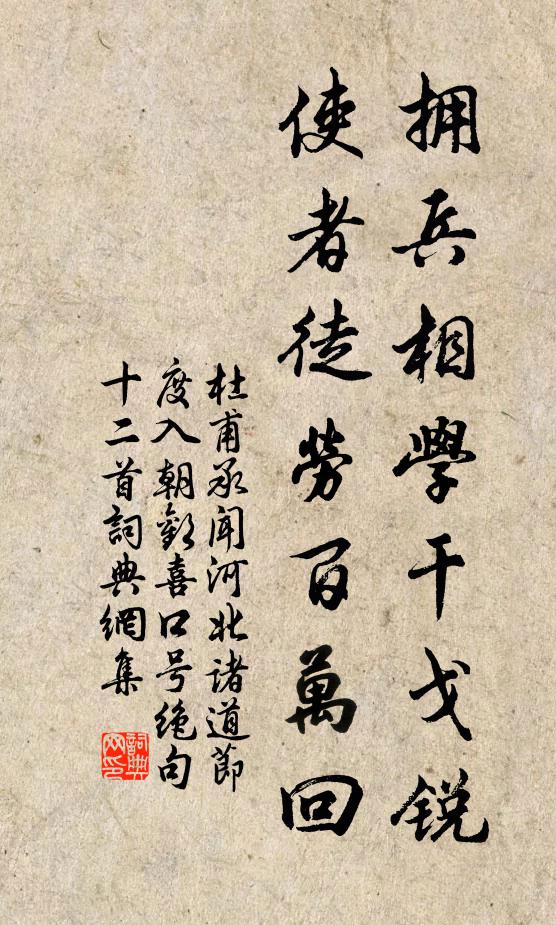 拥兵相學干戈銳
使者徒勞百萬回
杜甫承聞河北諸道節
度入朝歡喜口号絶句
十二首詞典網集
詞典
网印